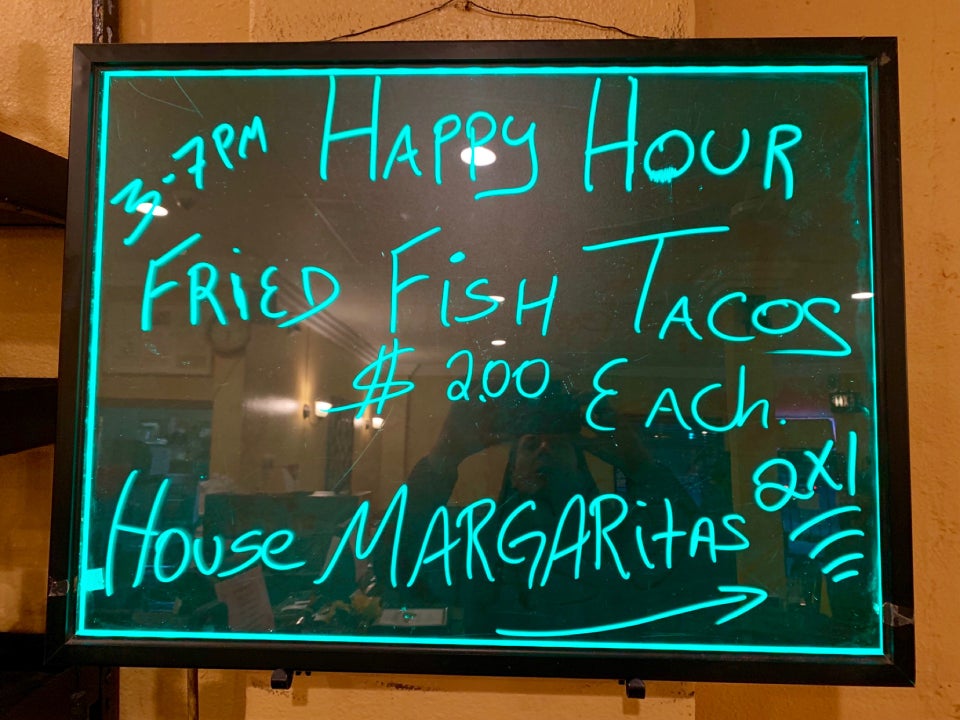 3-7PM HAPPY HOUR
FRiED FiSH TACOS
$ 2.00 EACh.
HOUSE MARGARitAS 2X1